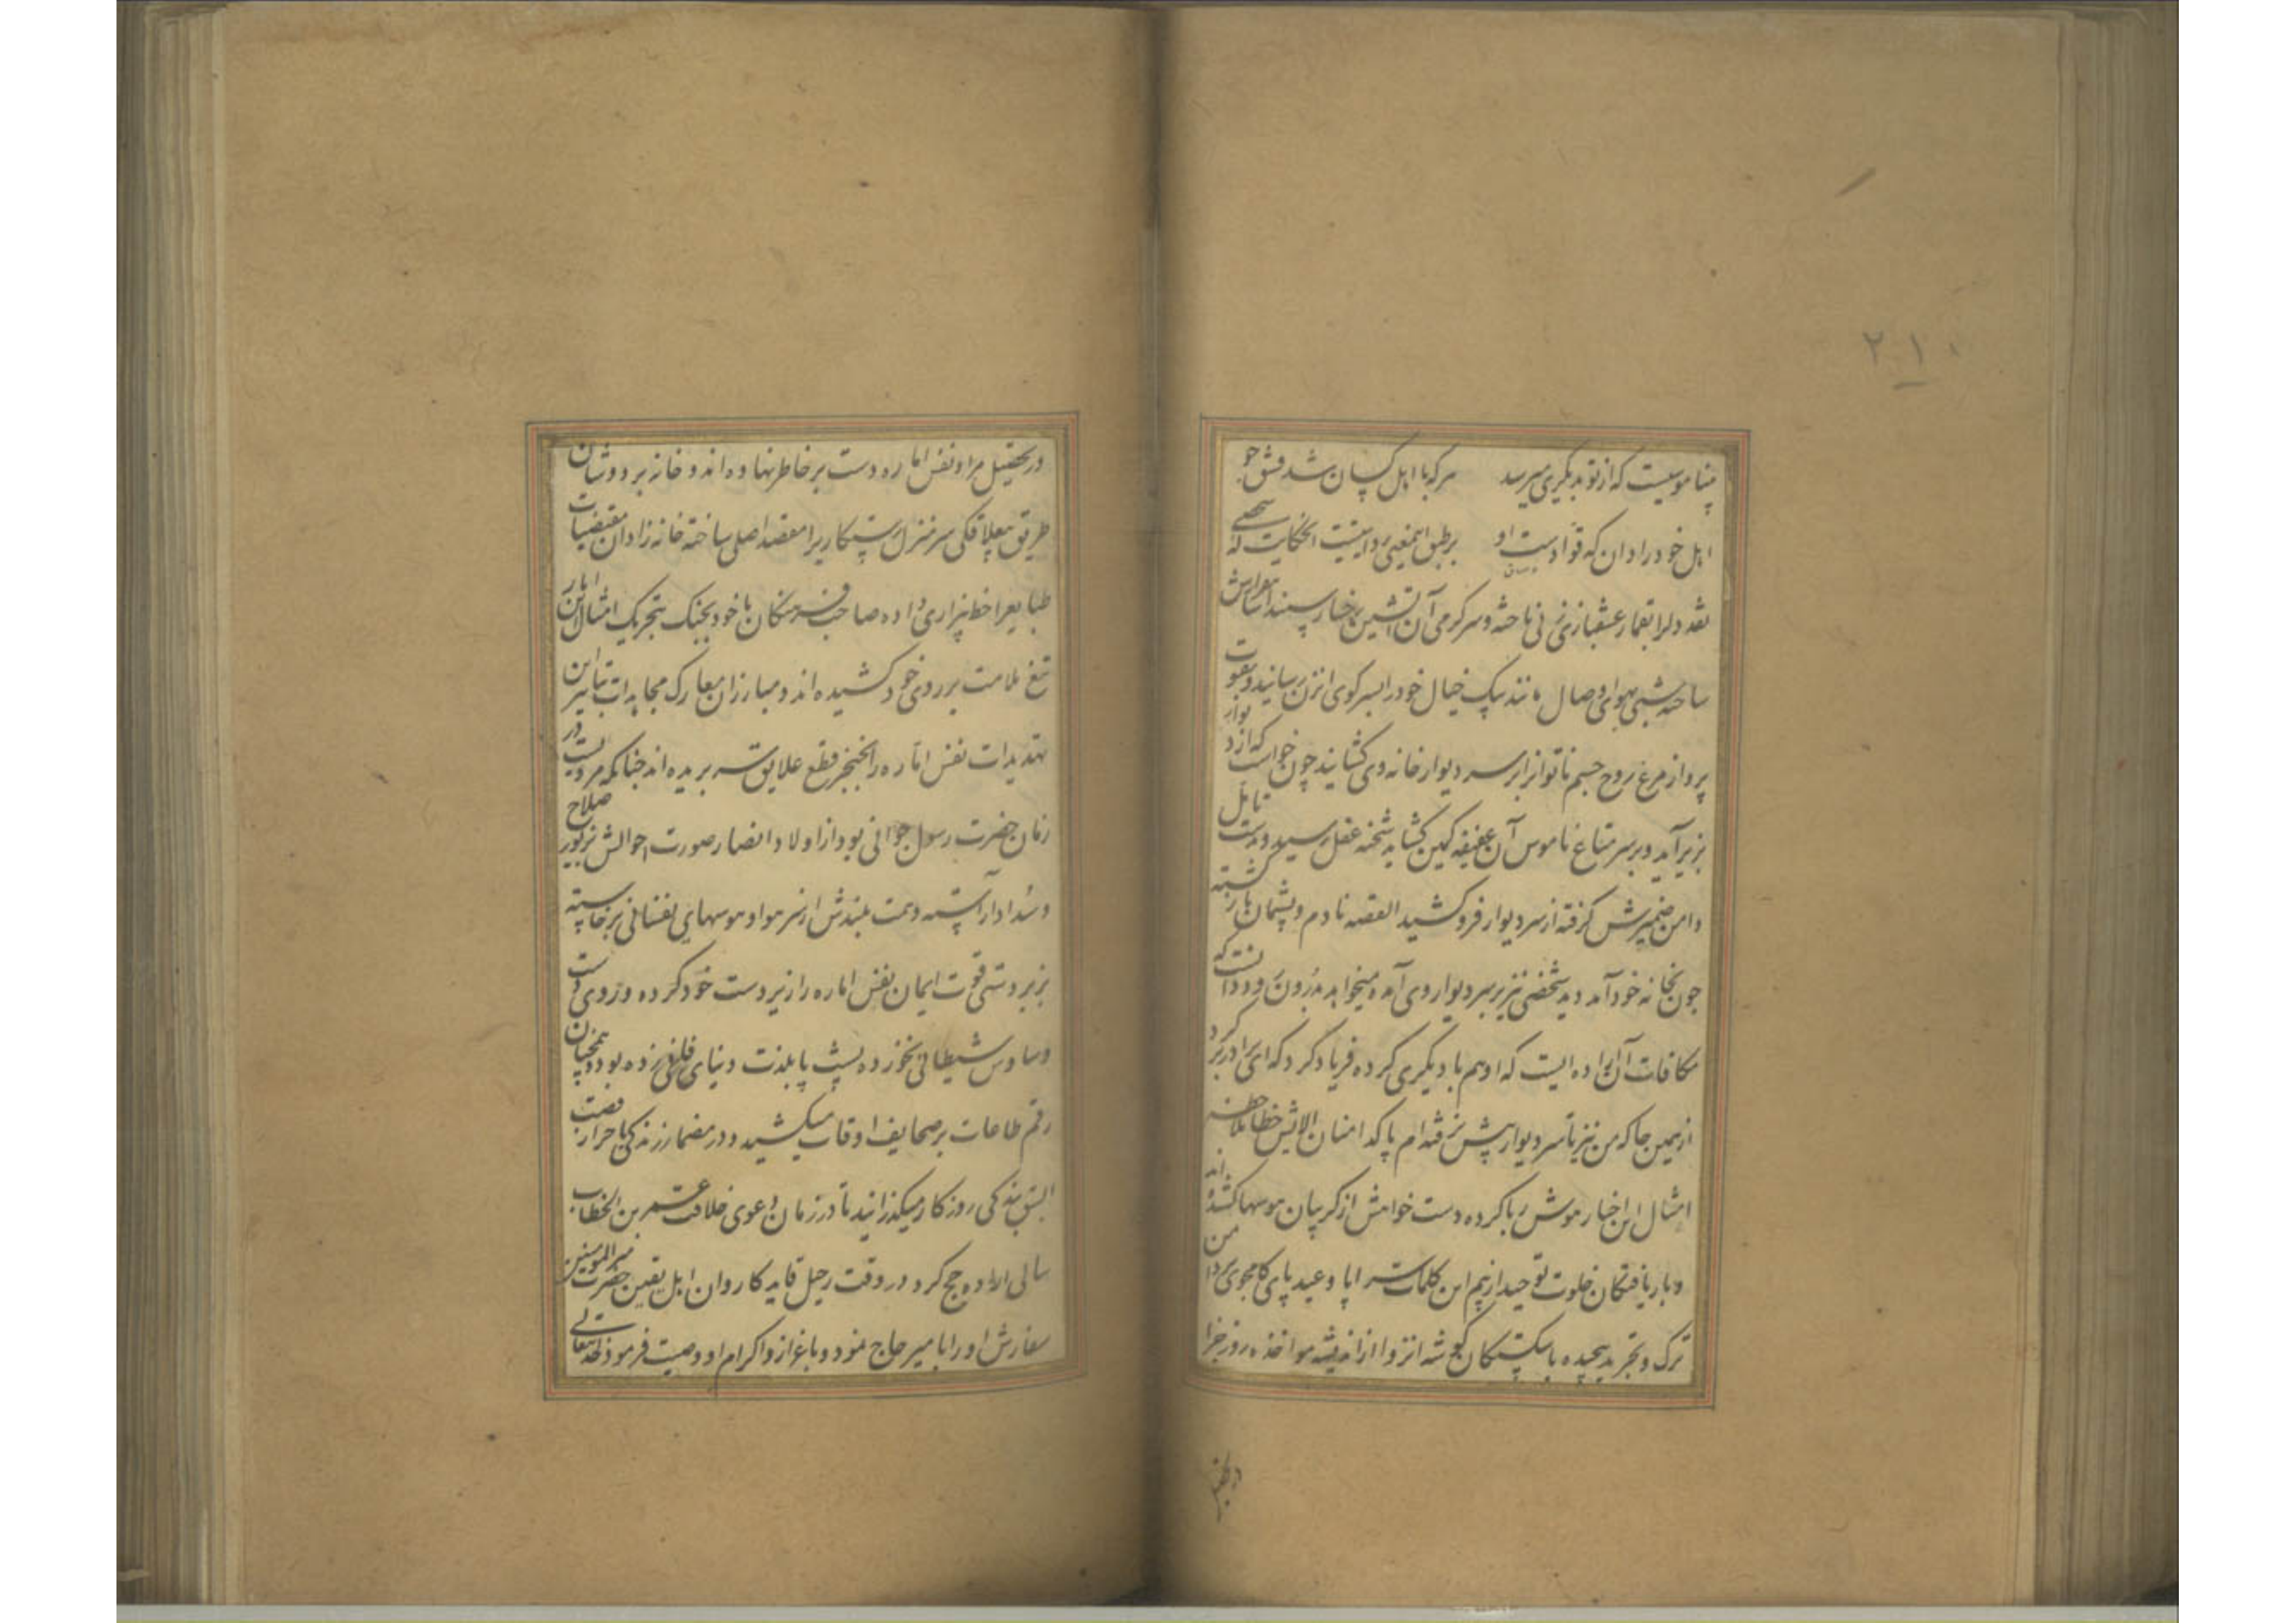 ۲۱۰
ناموسیست که از تو بدیگری میرسد هر که با اهل کسان شد فسق جو
اهل خود را دان که قوادست او بر طبق اینمعنی روایتست الحکایت که شخصی
نقد دلرا بقمار عشقبازی زنی باخته و سرگرمی آن آتشین رخسار سپند آساش
ساخته شبی بهوای وصال مانند پیک خیال خود را بسر کوی انزن رسانید و بقوت
پرواز مرغ روح جسم ناتوانرا بر سر دیوار خانه وی کشانید چون خواست که از دیوار
بزیر آمد و بر سر متاع ناموس آن عفیفه کمین کشاید شحنه عقل رسید و دست تامل
دامن ضمیرش گرفته از سر دیوار فرو کشید القصه نادم و پشیمان باز گشته
چون بخانه خود آمد دید شخصی نیز بر سر دیوار وی آمده میخواهد بدرون رود دانست که
مکافات آن اراده ایست که او هم با دیگری کرده فریاد کرد که ای برادر برگرد
از همین جا که من نیز تا سر دیوار پیش نرفته ام پاکدامنان الایش خطا بملاحظه
امثال این اخبار موش ربا کرده دست خواهش از گریبان هوسها کشیده اند
و بار یافتگان خلوت توحید از بیم این کلمات سراپا وعید پای کامجوی بدامن
ترک و تجرید پیچیده باشکستگان گوشه انزوا از اندیشه مواخذه روز جزا
در تحصیل
در تحصیل مراد نفس اماره دست بر خاطر نهاده اند و خانه بر دوشان
طریق بیعلاقگی سرمنزل رستکاریرا مقصد اصلی ساخته خانه زادان مقتضیات
طبایعرا خط بیزاری داده صاحب فرهنگان با خود بجنگ بتحریک امثال این اخبار
تیغ ملامت بر روی خود کشیده اند و مبارزان معارک مجاهدات بتاثیر این
تهدیدات نفس اماره را بخنجر قطع علایق سر بریده اند چنانکه مرویست در
زمان حضرت رسول جوانی بود از اولاد انصار صورت احوالش بزیور صلاح
و سداد آراسته و همت بلندش از سر هوا و هوسهای نفسانی برخاسته
بزبردستی قوت ایمان نفس اماره را زیردست خود کرده و روی دست
وساوس شیطانی نخورده پشت پا بلذت دنیای فانی زده بود و همچنان
رقم طاعات بر صحایف اوقات میکشید و در مضمار زندگی باحراز قصبت
السبق بندگی روزکار میکذرانید تا در زمان دعوی خلافت عمر بن الخطاب
سالی اراده حج کرد در وقت رحیل قاید کاروان اهل یقین حضرت امیرالمومنین
سفارش او را با میر حاج نمود و باعزاز و اکرام او وصیت فرمود خدایتعالی